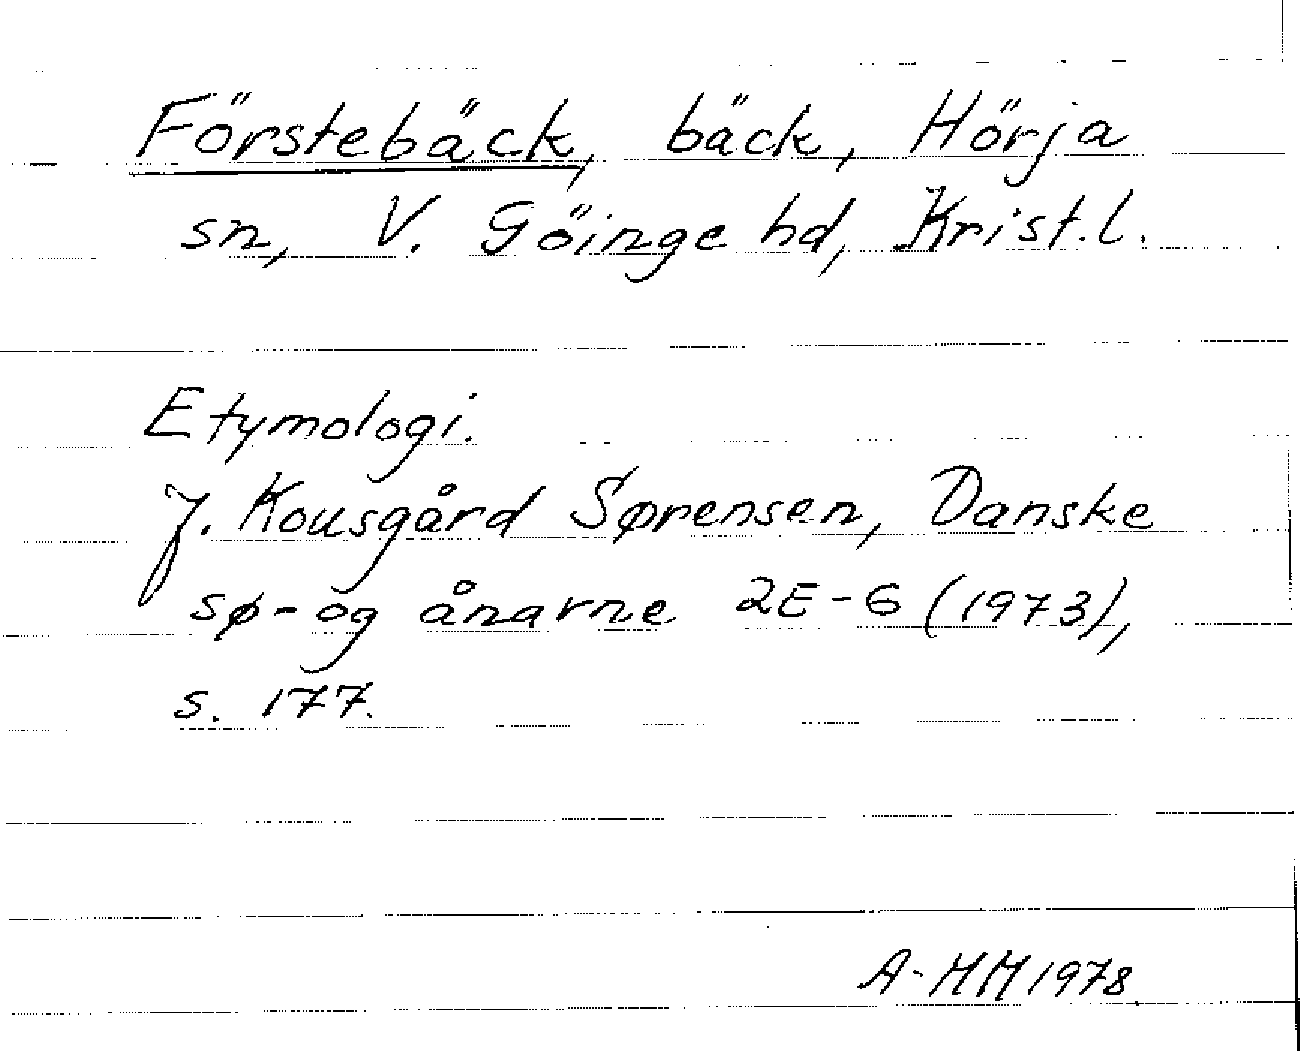 Förstebäck, bäck, Hörja
sn, V. Göinge hd, Krist.l.
Etymologi.
J. Kousgård Sørensen, Danske
sø- og ånavne 2E-G (1973),
s. 177.
A-HM 1978.